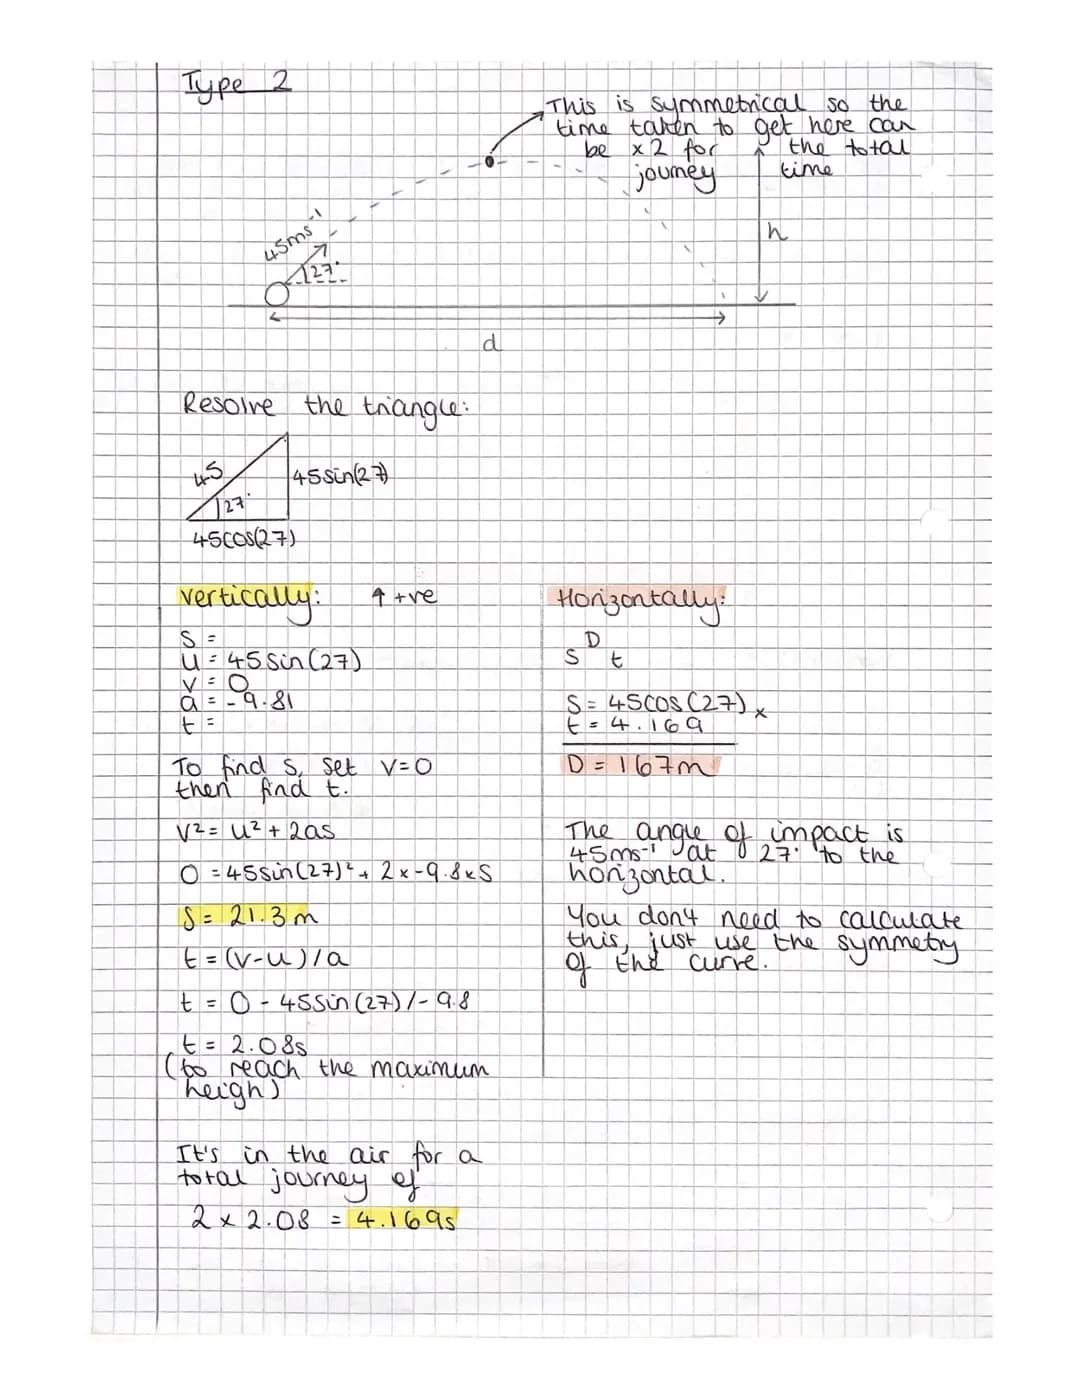 Type 2
This is symmetrical so the
time taken to get here can
be x2 for the total
journey time
45ms⁻¹
27°
h
d
Resolve the triangle:
45
45sin(27)
27°
45cos(27)
vertically: ↑ +ve
S =
u = 45sin(27)
v = 0
a = -9.81
t =
To find s, set v=0
then find t.
v² = u² + 2as
0 = 45sin(27)² + 2x-9.8xS
S = 21.3m
t = (v-u)/a
t = 0 - 45sin(27)/-9.8
t = 2.08s
(to reach the maximum
heigh)
It's in the air for a
total journey of
2 x 2.08 = 4.169s
Horizontally:
D
s t
S = 45cos(27) x
t = 4.169
D = 167m
The angle of impact is
45ms⁻¹ at 27° to the
horizontal.
You don't need to calculate
this, just use the symmetry
of the curve.